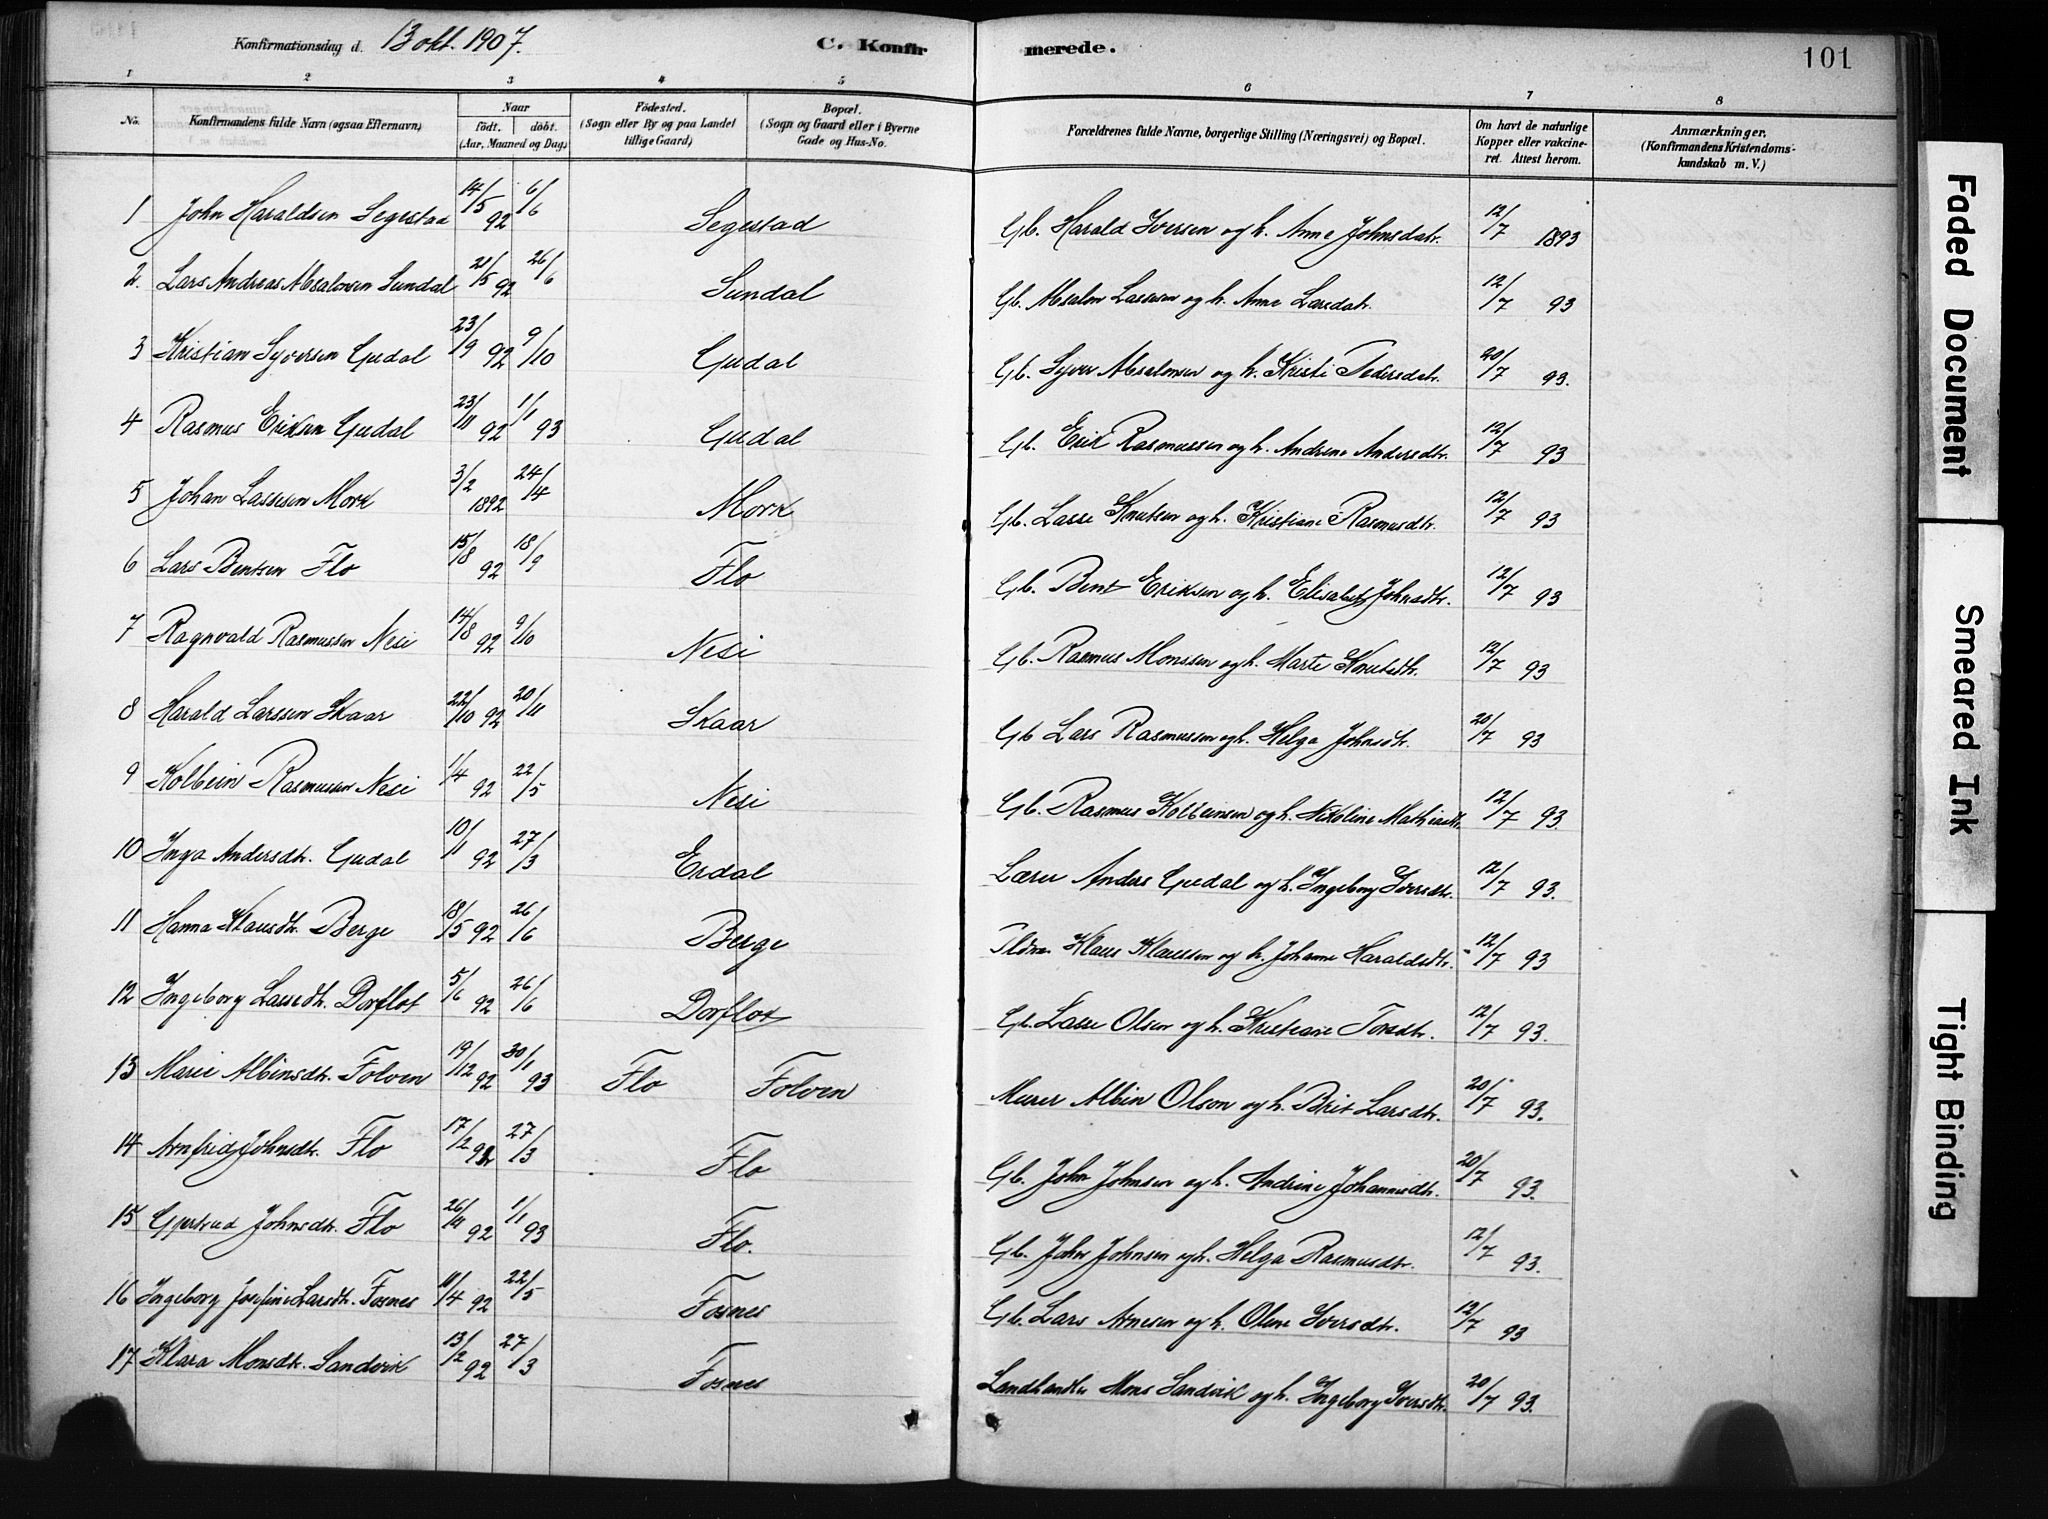 Konfirmationsdag d. 13 okt. 1907. C. Konfirmerede. 101
1 2 3 4 5 6 7 8
No. Konfirmandens fulde Navn (ogsaa Efternavn) Naar født. døbt. (Aar, Maaned og Dag) Födested. (Sogn eller By og paa Landet tillige Gaard) Bopæl. (Sogn og Gaard eller i Byerne Gade og Hus-No. Forældrenes fulde Navne, borgerlige Stilling (Næringsvei) og Bopæl. Om havt de naturlige Kopper eller vakcineret. Attest herom. Anmærkninger. (Konfirmandens Kristendomskundskab m. V.)
1 John Haraldsen Segestad 14/5 92 6/6 Segestad Gb. Harald Iversen og h. Anne Johnsdatr. 12/7 1893
2. Lars Andreas Absalonsen Sundal 21/5 92 26/6 Sundal Gb. Absalon Lassesen og h. Anne Larsdatr. 12/7 93
3 Kristian Syversen Gudal 23/9 92 9/10 Gudal Gb. Syver Absalonsen og h. Kristi Pedersdatr. 20/7 93.
4 Rasmus Eriksen Gudal 23/11 92 1/1 93 Gudal Gb. Erik Rasmussen og h. Andrine Andersdtr. 12/7 93
5 Johan Lassesen Mork 3/2 1892 24/4 Mork Gb. Lasse Knutsen og h. Kristiane Rasmusdtr. 12/7 93
6 Lars Bentsen Flo 15/8 92 18/9 Flo Gb. Bent Eriksen og h. Elisabet Johnsdtr. 12/7 93
7 Ragnvald Rasmussen Nesi 14/8 92 9/10 Nesi Gb. Rasmus Monssen og h. Marte Knutsdtr. 12/7 93
8 Harald Larssen Skaar 22/10 92 20/11 Skaar Gb Lars Rasmussen og h. Helga Johnsdtr. 20/7 93
9 Kolbein Rasmussen Nesi 1/4 92 22/5 Nesi Gb. Rasmus Kolbeinsen og h. Nikoline Mathiasdtr. 12/7 93.
10 Inga Andersdtr. Gudal 10/1 92 27/3 Erdal Lærer Anders Gudal og h. Ingeborg Iversdtr. 12/7 93.
11 Hanna Klausdtr. Berge 18/5 92 26/6 Berge Klaus Klaussen og h. Johanne Haraldsdtr. 12/7 93
12 Ingeborg Lassedtr. Dorflot 5/6 92 26/6 Dorflot Gb. Lasse Olsen og h. Kristiane Torsdtr. 12/7 93.
13 Marie Albinsdtr. Folven 19/12 92 30/1 93 Flo Folven Murer Albin Olson og h. Brit Larsdtr. 20/7 93.
14 Arnfrid Johnsdtr. Flo 17/2 92 27/3 Flo Gb. John Johnsen og h. Andrine Johannesdtr. 20/7 93.
15 Gjertrud Johnsdtr. Flo 26/11 92 1/1 93 Flo. Gb. John Johnsen og h. Helga Rasmusdtr. 12/7 93.
16 Ingeborg Josefine Larsdtr. Fosnes 11/4 92 22/5 Fosnes Gb. Lars Arnesen og h. Oline Iversdtr. 12/7 93
17 Klara Monsdtr. Sandvik 13/2 92 27/3 Fosnes Landhandler Mons Sandvik og h. Ingeborg Iversdtr. 20/7 93.
Faded Document
Smeared Ink
Tight Binding